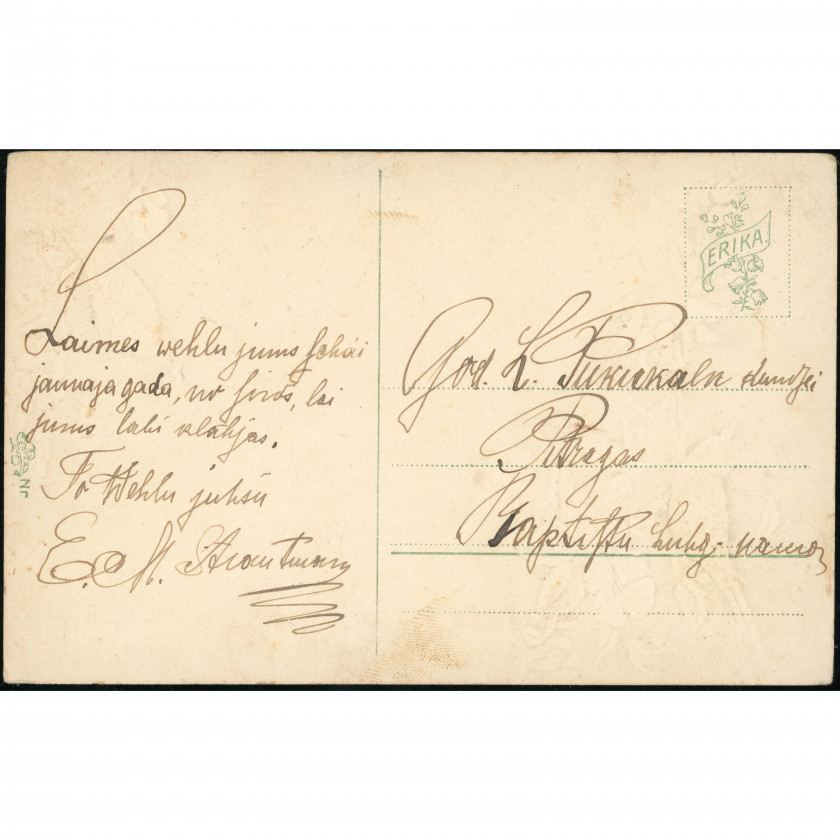 Laimes wehlu jums schai
jaunaja gada, no sirds, lai
jums labi klahjas.
To Wehlu juhsu
E. M. Strautman
ERIKA.
God. L. Pukukaln kundzei
Pitragas
Baptistu Luhg. namā
Nr